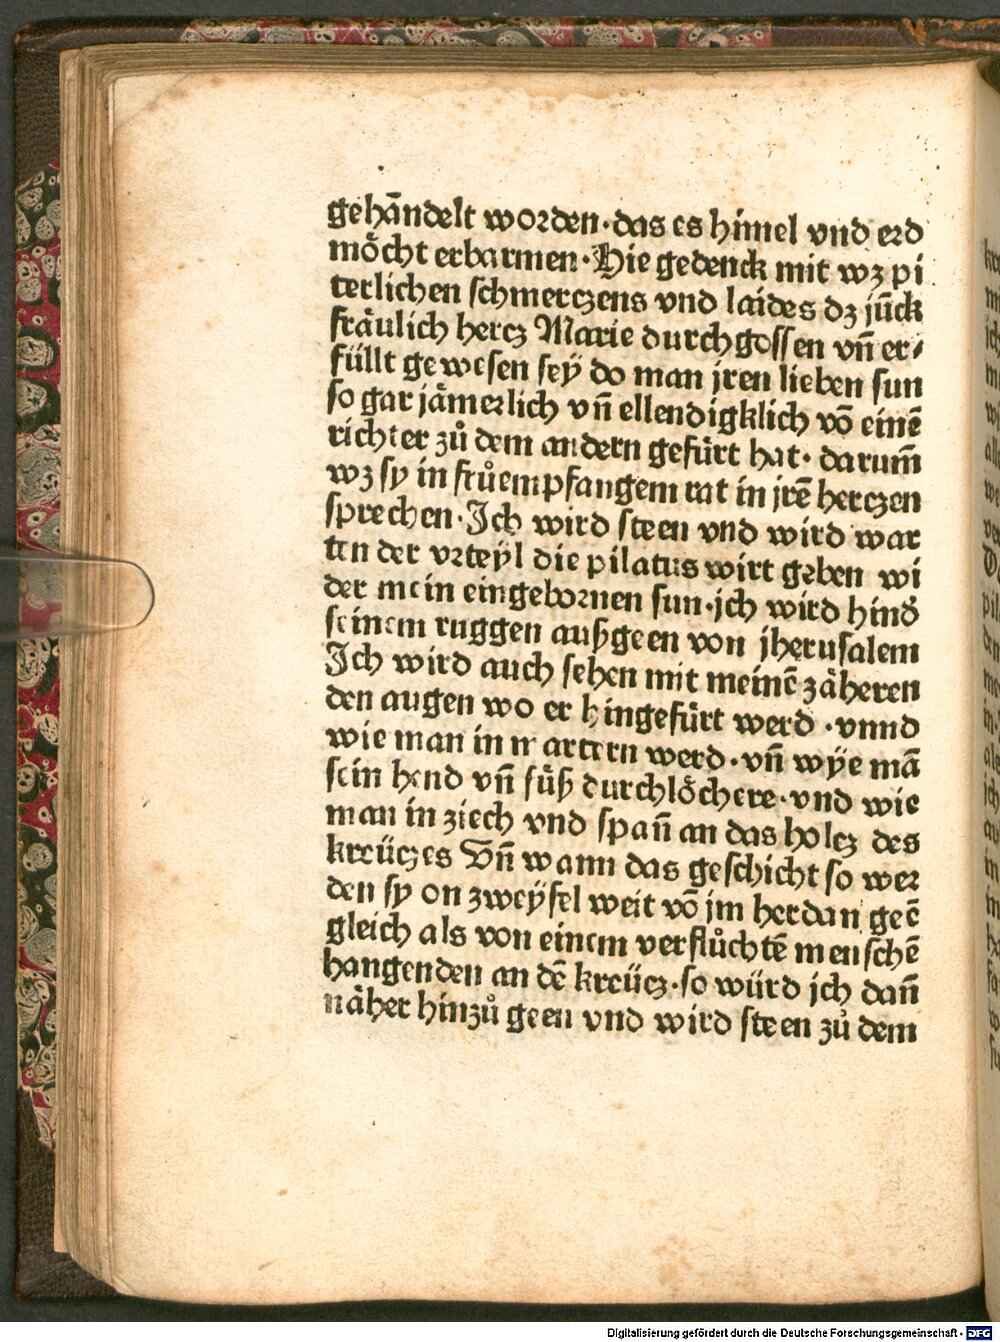 gehāndelt worden·das es himel vnd erd
mo̊cht erbarmen·Hie gedenck mit wʒ pi
terlichen schmerczens vnd laides dʒ jūck
fräulich hercʒ Marie durchgossen vn̄ er⸗
füllt gewesen seÿ do man jren lieben sun
so gar jämerlich vn̄ ellendigklich vō einē
richter zů dem andern gefürt hat· darum̄
wʒ sy in frůempfangem rat in jrē herczen
sprechen·Ich wird steen vnd wird war
ten der vrteÿl die pilatus wirt geben wi
der mein eingebornen sun·jch wird hind̾
seinem ruggen außgeen von jherusalem
Ich wird auch sehen mit meinē zäheren
den augen wo er hingefürt werd ·vnnd
wie man in martern werd·vn̄ wÿe mā
sein hend vn̄ füß durchlöchere·vnd wie
man in ziech vnd span̄ an das holcʒ des
kreüczes Vn̄ wann das geschicht so wer
den sy on zweÿfel weit vō jm herdan geē
gleich als von einem verflůchtē menschē
hangenden an dē kreücʒ·so würd jch dan̄
näher hinzů geen vnd wird steen zů dem
Digitalisierung gefördert durch die Deutsche Forschungsgemeinschaft - DFG